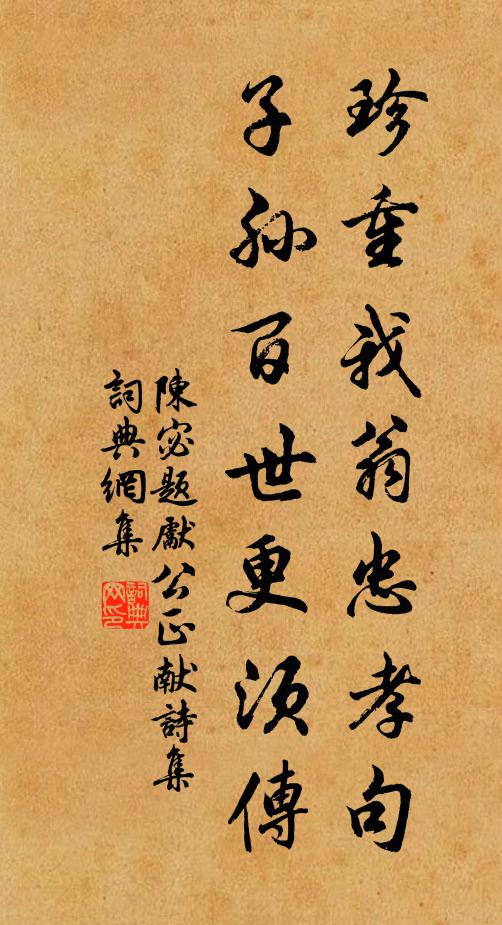 珍重我翁忠孝句
子孫百世更須傳
陳宓題獻公正献詩集
詞典網集
詞典網印